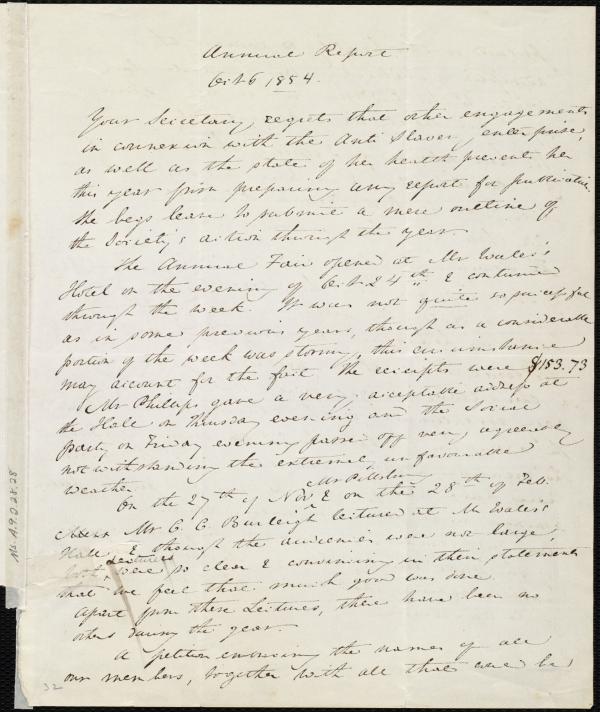 Annual Report
Oct 6 1854.
Your Secretary, regrets that other engagements
in connexion with the Anti Slavery enterprise,
as well as the state of her health prevents her
this year from preparing any report for publication
She begs leave to submit a mere outline of
the Society's action through the year.
The Annual Fair opened at Mr Wales's
Hotel on the evening of Oct 24th & continued
through the week. It was not quite so successful
as in some previous years, though as a considerable
portion of the week was stormy, this circumstance
may account for the fact. The receipts were $153.73
Mr Phillips gave a very acceptable address at
the Hall on Thursday evening and the Social
party on Friday evening passed off very agreeably
notwithstanding the extremely unfavourable
weather.
Mr Pillsbury
On the 27th of Nov & on the 28th of Feb.
Mr C. C. Burleigh lectured at Mr Wales's
Hall, & though the audiences were not large,
Lectures
both were so clear & convincing in their statements
that we feel that much good was done
apart from these Lectures, there have been no
others during the year.
A petition embracing the names of all
our members, together with all that could be
Ms.A.9.2.28.28
32